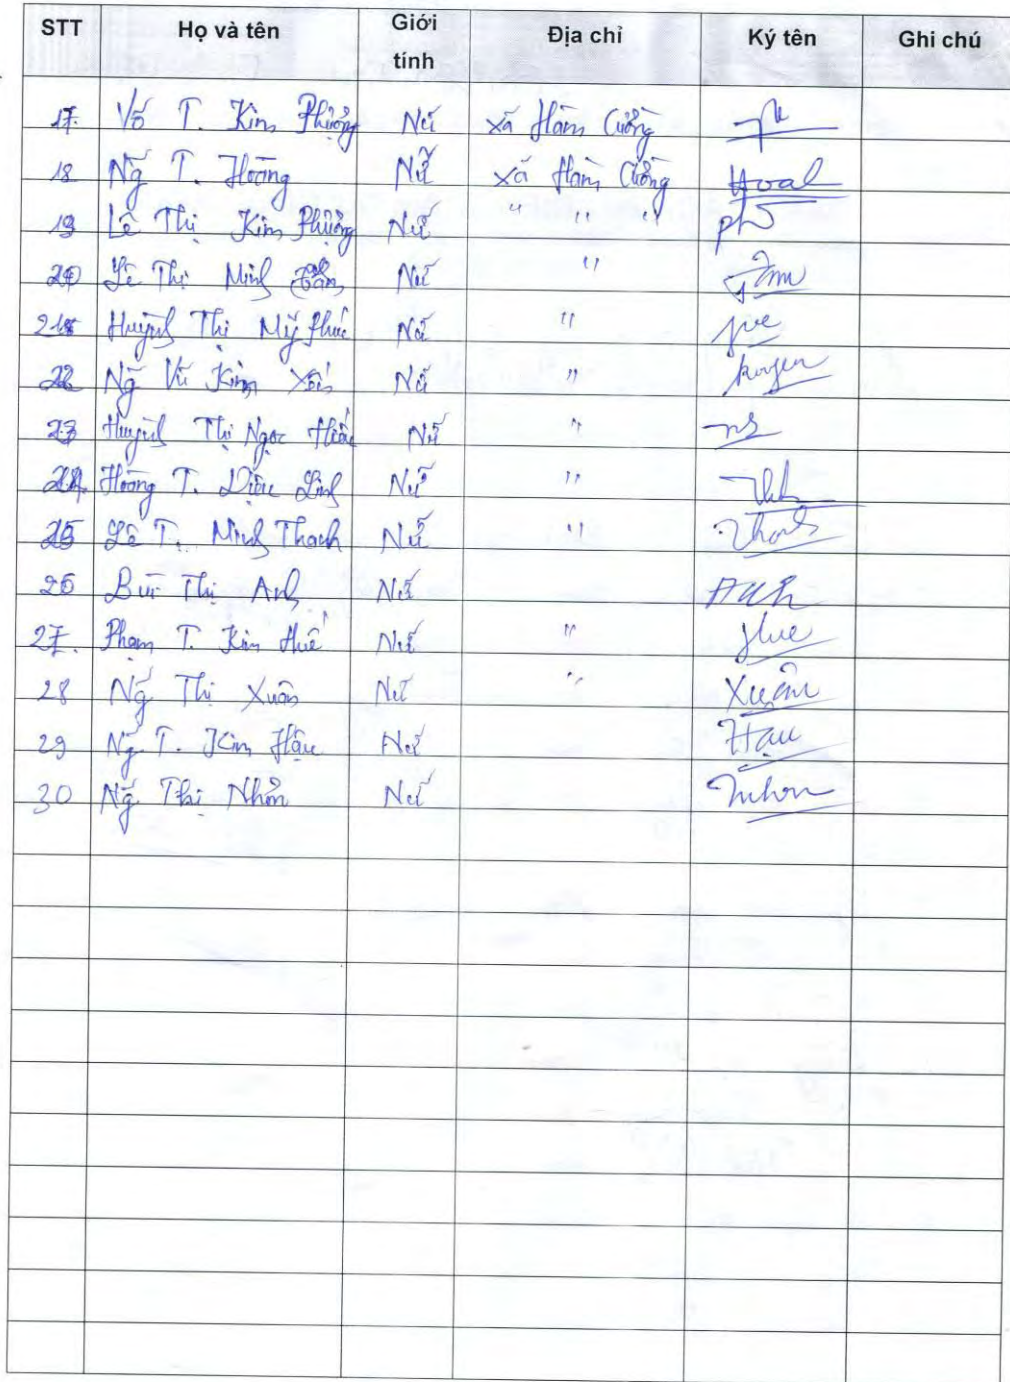 STT Họ và tên Giới tính Địa chỉ Ký tên Ghi chú
17. Võ T. Kim Phượng Nữ xã Hàm Cường
18 Ng̃ T. Hoàng Nữ xã Hàm Cường Hoal
19 Lê Thị Kim Phượng Nữ " " " ph
20 Lê Thị Minh Tâm Nữ "
21 Huỳnh Thị Mỹ Phúc Nữ "
22 Ng̃ Vũ Kim Nữ "
23 Huỳnh Thị Ngọc Hiếu Nữ "
24. Hoàng T. Diệu Linh Nữ "
25 Lê T. Minh Thạch Nữ "
26 Bùi Thị Anh Nữ Anh
27. Phạm T. Kim Huế Nữ " Hue
28 Ng̃ Thị Xuân Nữ " Xuân
29 Ng̃ T. Kim Hậu Nữ Hau
30 Ng̃ Thị Nhơn Nữ Nhon